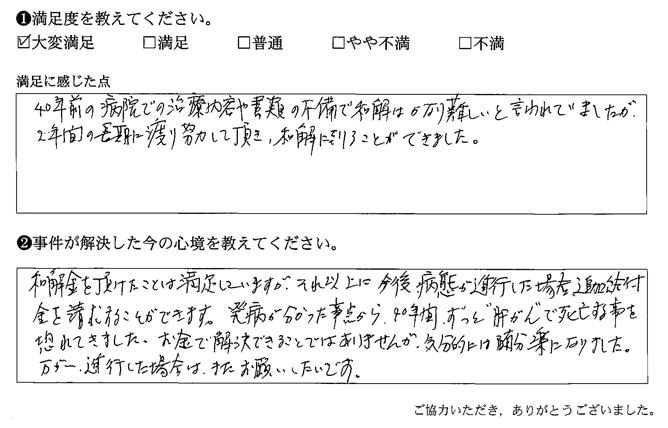 ❶満足度を教えてください。
☑大変満足 □満足 □普通 □やや不満 □不満
満足に感じた点
40年前の病院での治療内容や書類の不備で和解はかなり難しいと言われてましたが、
2年間の長期に渡り努力して頂き、和解に到ることができました。
❷事件が解決した今の心境を教えてください。
和解金を頂けたことは満足していますが、それ以上に今後病態が進行した場合追加給付
金を請求することができます。発病が分かった時点から、40年間、ずっと肝がんで死亡する事を
恐れてきました。お金で解決できることではありませんが、気分的には随分楽になりました。
万が一、進行した場合は、またお願いしたいです。
ご協力いただき，ありがとうございました。